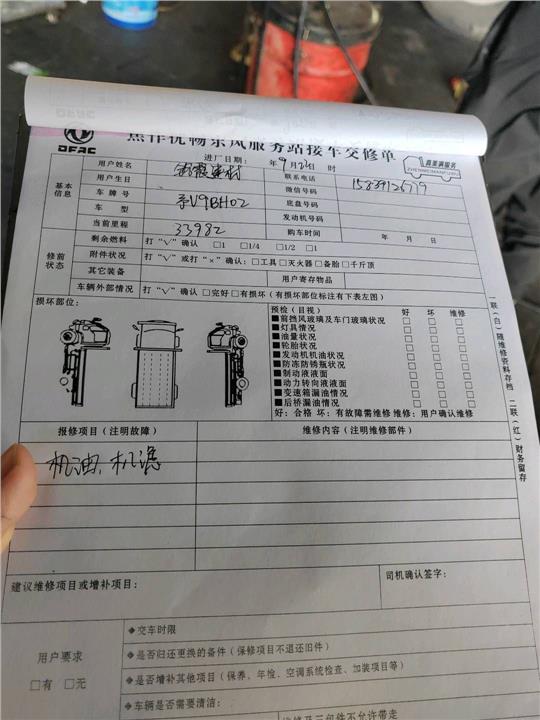 DFAC
焦作优畅东风服务站接车交修单
嘉莱满服务
进厂日期: 年 9 月 22 日 时
基本信息
用户姓名
联系电话 15839126779
用户生日
微信号码
车牌号 V9BH02
底盘号码
车型
发动机号码
当前里程 33982
购车时间 年 月 日
修前状态
剩余燃料 打“√”确认 □1 □1/4 □1/2 □1
附件状况 打“√”或打“×”确认:□工具□灭火器□备胎□千斤顶
其它装备 用户寄存物品
车辆外部情况 打“√”确认□完好□有损坏(有损坏部位标注有下表左图)
损坏部位:
预检(目视) 好 坏 维修
■前挡风玻璃及车门玻璃状况 □ □ □
■灯具情况 □ □ □
■油量状况 □ □ □
■轮胎状况 □ □ □
■发动机机油状况 □ □ □
■防冻防锈瓶状况 □ □ □
■制动液液面 □ □ □
■动力转向液液面 □ □ □
■变速箱漏油情况 □ □ □
■后桥漏油情况 □ □ □
好:合格 坏:有故障需维修 维修:用户确认维修
一联(白)随维修资料存档 二联(红)财务留存
报修项目(注明故障) 维修内容(注明维修部件)
机油,机滤
建议维修项目或增补项目:
司机确认签字:
用户要求
□有 □无
◆交车时限
◆是否归还更换的备件(保修项目不退还旧件)
◆是否增补其他项目(保养、年检、空调系统检查、加装项目等)
◆车辆是否需要清洁:
件不允许带走